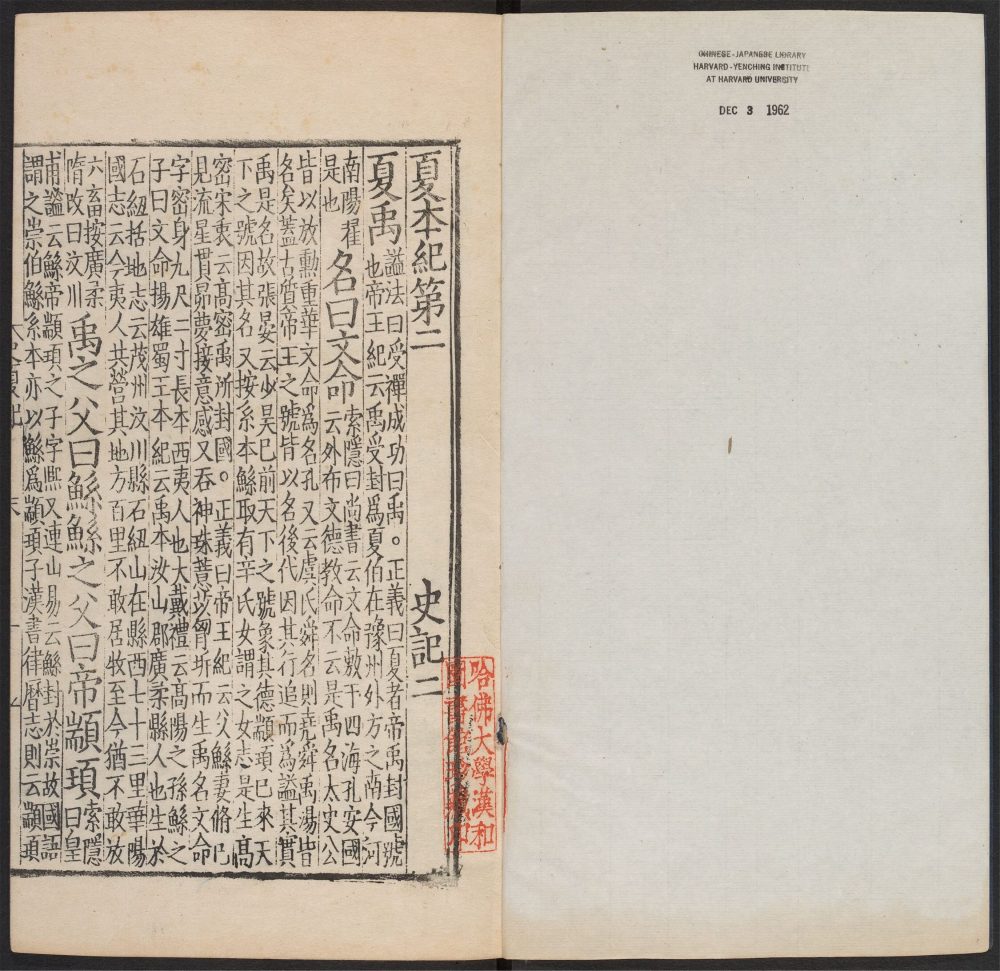 CHINESE-JAPANESE LIBRARY
HARVARD-YENCHING INSTITUTE
AT HARVARD UNIVERSITY
DEC 3 1962
哈佛大學漢和
圖書館珍藏印
夏本紀第二 史記二
夏禹
謚法曰受禪成功曰禹。正義曰夏者帝禹封國號
也帝王紀云禹受封爲夏伯在豫州外方之南今河
南陽翟
是也
名曰文命
索隱曰尚書云文命敷于四海孔安國
云外布文德教命不云是禹名太史公
皆以放勳重華文命爲名孔又云虞氏舜名則堯舜禹湯皆
名矣蓋古質帝王之號皆以名後代因其行追而爲謚其實
禹是名故張晏云少昊已前天下之號象其德顓頊已來天
下之號因其名又按系本鯀取有辛氏女謂之女志是生高
密宋衷云高密禹所封國。正義曰帝王紀云父鯀妻脩己
見流星貫昴夢接意感又吞神珠薏苡胷坼而生禹名文命
字密身九尺二寸長本西夷人也大戴禮云高陽之孫鯀之
子曰文命揚雄蜀王本紀云禹本汶山郡廣柔縣人也生於
石紐括地志云茂州汶川縣石紐山在縣西七十三里華陽
國志云今夷人共營其地方百里不敢居牧至今猶不敢放
六畜按廣柔
隋改曰汶川
禹之父曰鯀鯀之父曰帝顓頊
索隱
曰皇
甫謐云鯀帝顓頊之子字熙又連山易云鯀封於崇故國語
謂之崇伯鯀系本亦以鯀爲顓頊子漢書律曆志則云顓頊